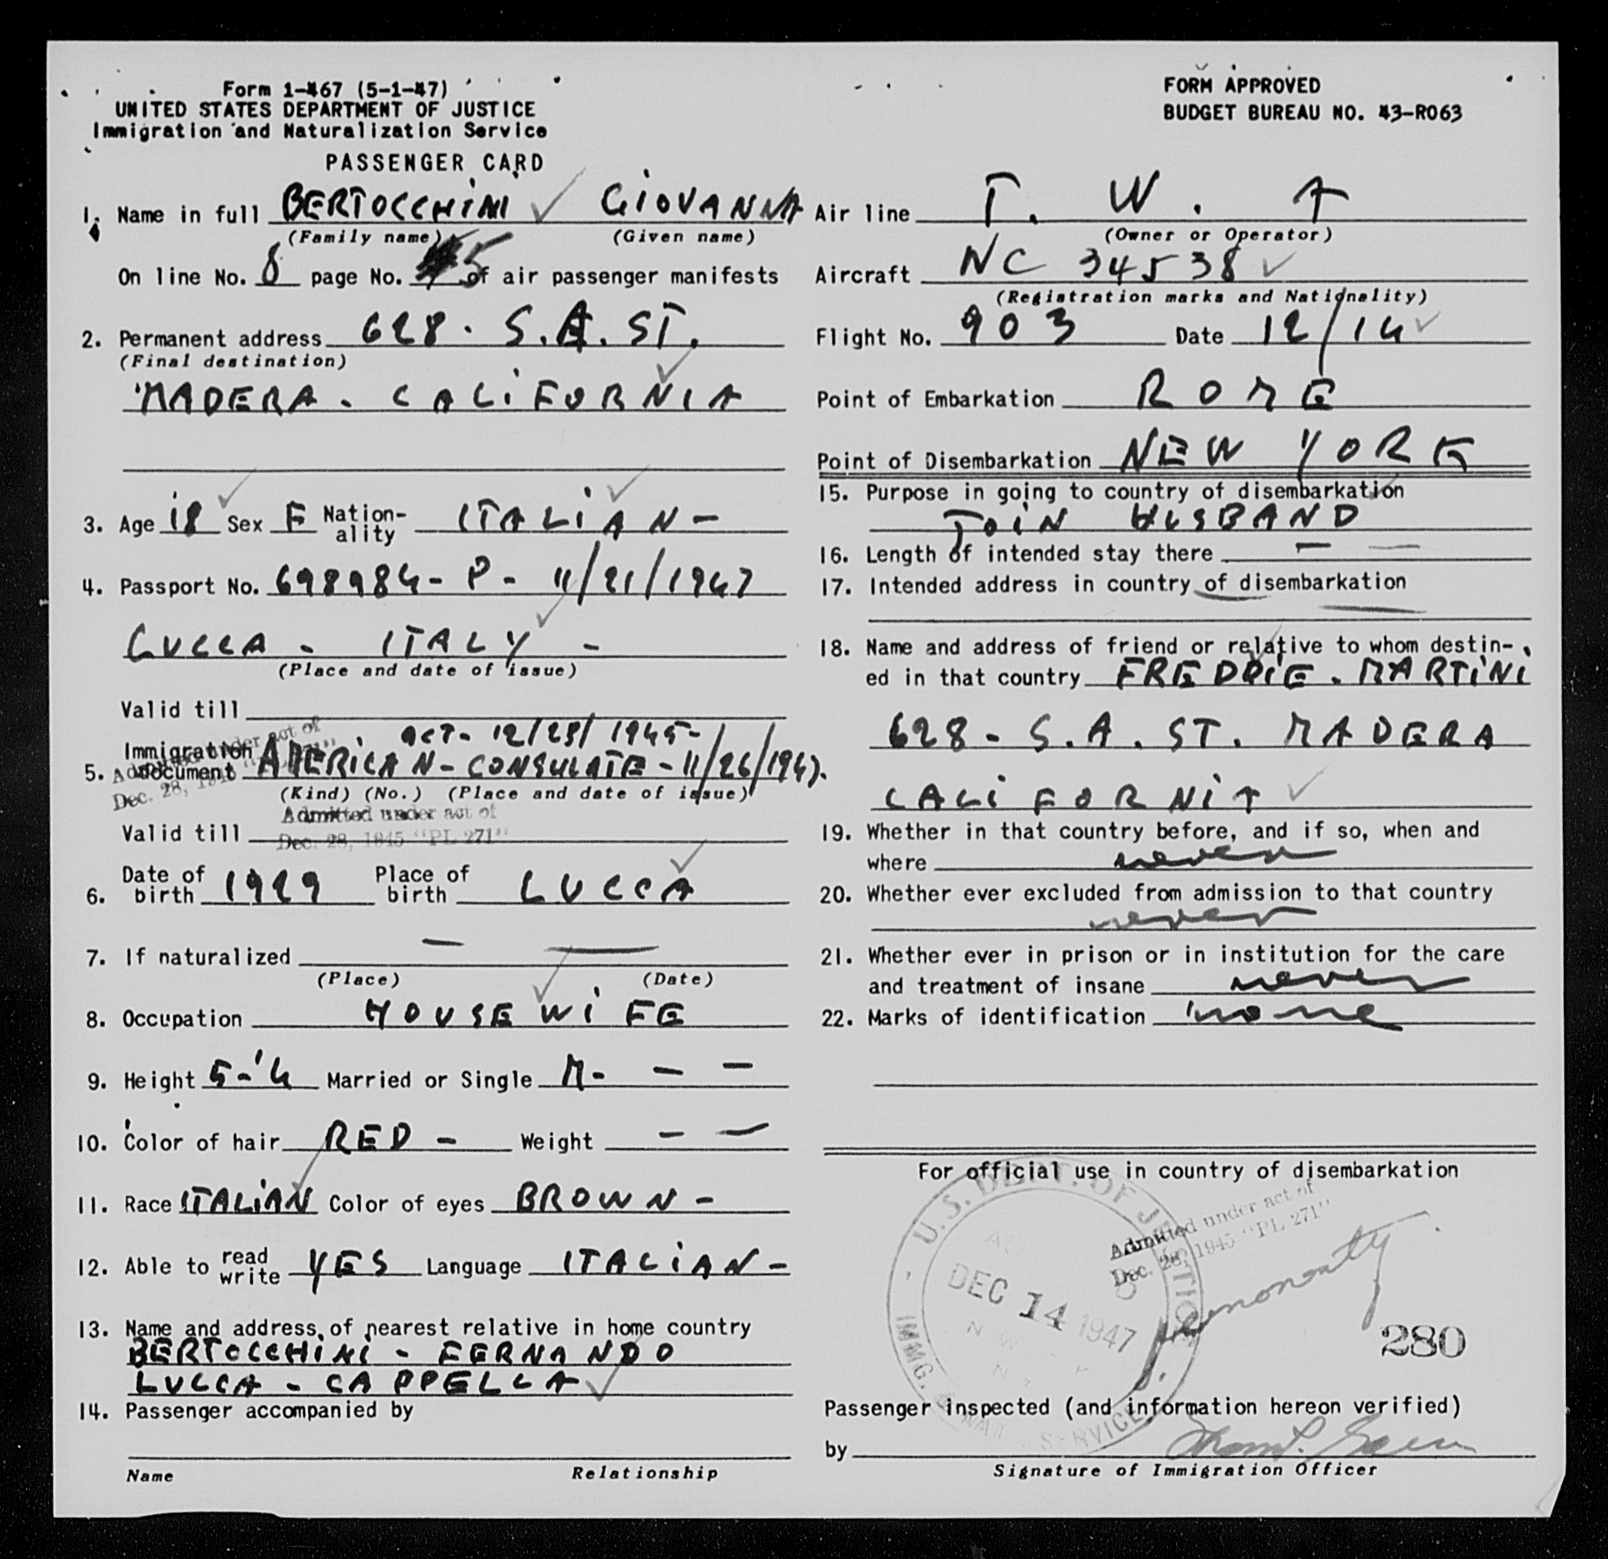 Form 1-467 (5-1-47)
UNITED STATES DEPARTMENT OF JUSTICE
Immigration and Naturalization Service
PASSENGER CARD
FORM APPROVED
BUDGET BUREAU NO. 43-R063
1. Name in full BERTOCCHINI GIOVANNA
(Family name) (Given name)
On line No. 8 page No. 5 of air passenger manifests
2. Permanent address 628 . S.A. ST.
(Final destination)
MADERA - CALIFORNIA
3. Age 18 Sex F Nation-ality ITALIAN -
4. Passport No. 698984 - P - 11/21/1947
LUCCA - ITALY -
(Place and date of issue)
Valid till
Admitted under act of
Dec. 28, 1945 "PL 271"
ACT - 12/28/1945 -
5. Immigration Document AMERICAN - CONSULATE - 11/26/1947.
(Kind) (No.) (Place and date of issue)
Admitted under act of
Valid till
Dec. 28, 1945 "PL 271"
6. Date of birth 1929 Place of birth LUCCA
7. If naturalized — —
(Place) (Date)
8. Occupation HOUSEWIFE
9. Height 5-'4 Married or Single M - - -
10. Color of hair RED - Weight - -
11. Race ITALIAN Color of eyes BROWN -
12. Able to read write YES Language ITALIAN -
13. Name and address of nearest relative in home country
BERTOCCHINI - FERNANDO
LUCCA - CAPPELLA
14. Passenger accompanied by
Name Relationship
Air line T. W. A
(Owner or Operator)
Aircraft NC 34538
(Registration marks and Nationality)
Flight No. 903 Date 12/14
Point of Embarkation ROME
Point of Disembarkation NEW YORK
15. Purpose in going to country of disembarkation
JOIN HUSBAND
16. Length of intended stay there — —
17. Intended address in country of disembarkation
18. Name and address of friend or relative to whom destin-
ed in that country FREDDIE . MARTINI
628 - S.A. ST. MADERA
CALIFORNIA
19. Whether in that country before, and if so, when and
where never
20. Whether ever excluded from admission to that country
never
21. Whether ever in prison or in institution for the care
and treatment of insane never
22. Marks of identification none
For official use in country of disembarkation
U.S. DEPT. OF JUSTICE
IMMG. & NAT. SERVICE
DEC 14 1947
Admitted under act of
Dec. 28, 1945 "PL 271"
280
Passenger inspected (and information hereon verified)
by
Signature of Immigration Officer